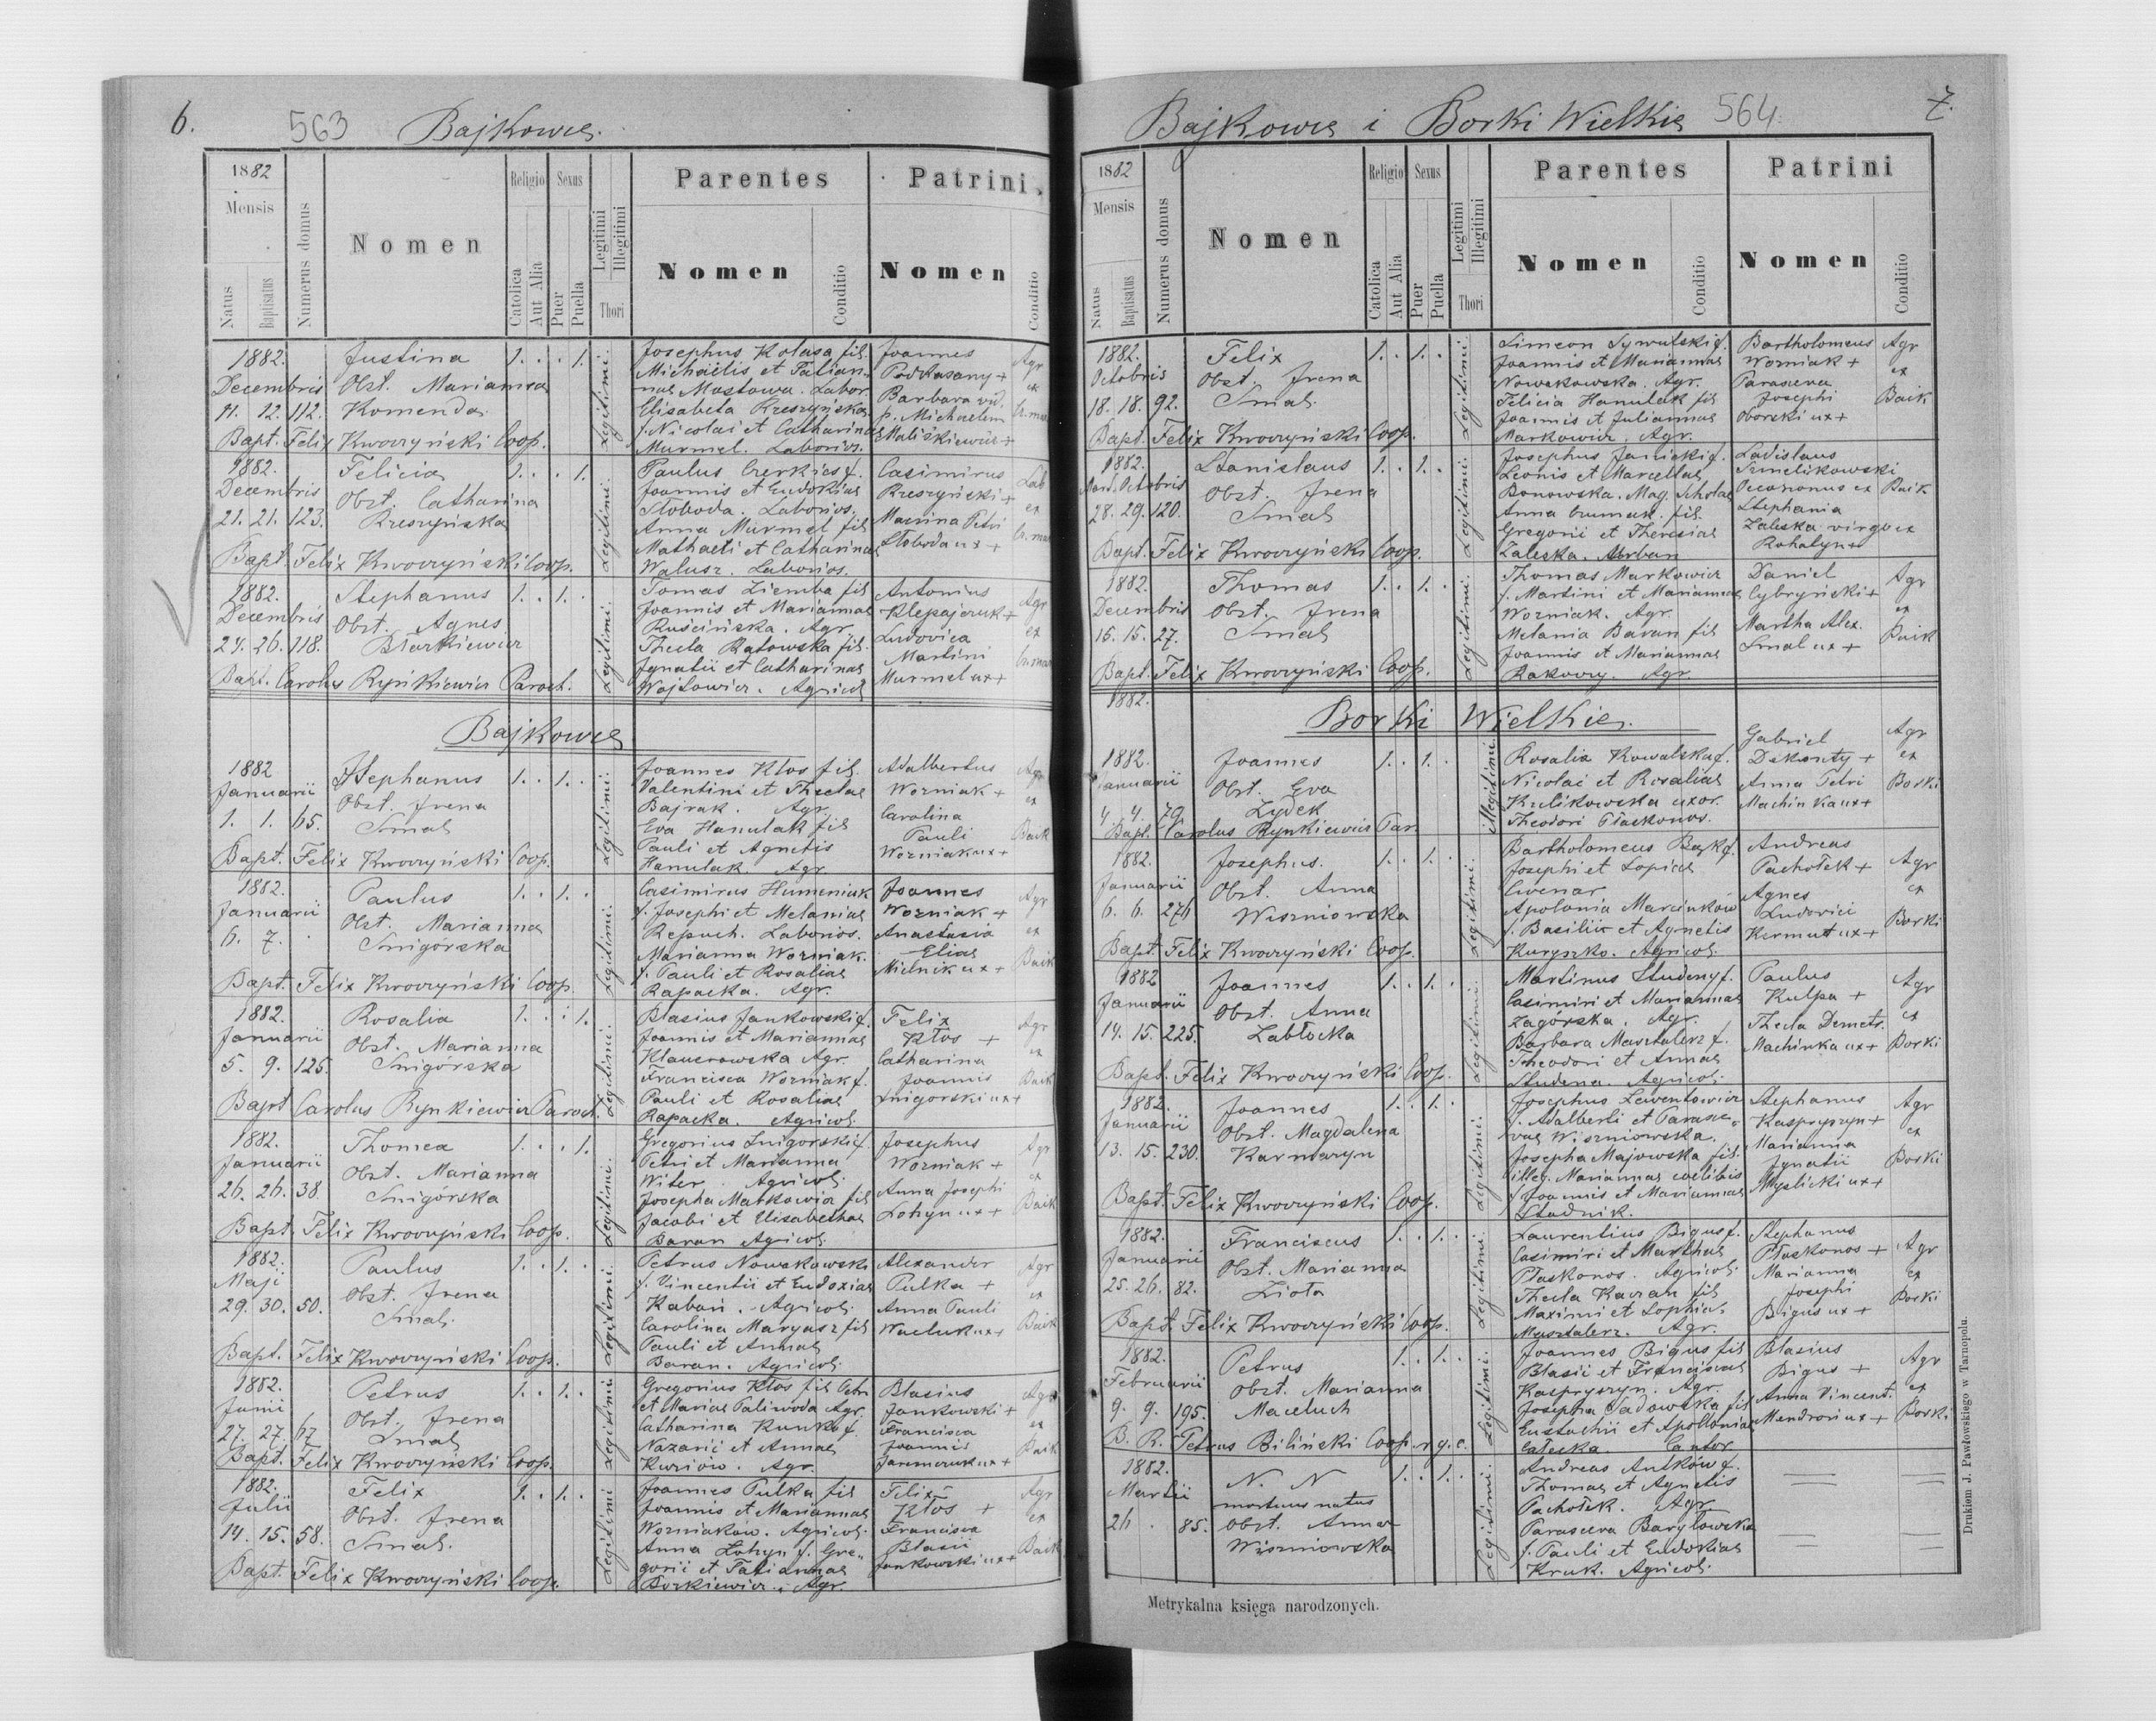 6.
563
Bajkowce.
1882
Mensis
Natus
Baptisatus
Numerus domus
Nomen
Religio
Catolica
Aut Alia
Sexus
Puer
Puella
Legitimi
Illegitimi
Thori
Parentes
Nomen
Conditio
Patrini
Nomen
Conditio
1882.
Decembris
11. 12. 112.
Justina
Obst. Marianna
Komenda
1. . . 1.
Legitimi.
Josephus Kolasa fil.
Michaelis et Tatian-
nae Mostowa. Labor.
Elisabeta Kreszyńska
f. Nicolai et Catharinae
Murmel. Laborios.
Joannes
Podkasany +
Barbara vid.
p. Michaelem
Maliśkiewicz +
Agr
ex
Bapt. Felix Kwoczyński Coop.
1882.
Decembris
21. 21. 123.
Felicia
Obst. Catharina
Kreszyńska
1. . . 1.
Legitimi.
Paulus Czerkies f.
Joannis et Eudokiae
Słoboda. Laborios.
Anna Murmel fil
Mathaei et Catharinae
Walusz. Laborios.
Casimirus
Kreszyński +
Marina Petri
Słoboda ux +
Lab
ex
Bapt. Felix Kwoczyński Coop.
1882.
Decembris
24. 26. 118.
Stephanus
Obst. Agnes
Błarkiewicz
1. . 1. .
Legitimi.
Tomas Ziemba fil
Joannis et Mariannae
Ruścińska. Agr
Thecla Ratowska fil.
Ignatii et Catharinae
Wojtowicz. Agricol
Antonius
Klepajczuk +
Ludovica
Martini
Murmel ux +
Agr
ex
Bapt. Carolus Rynkiewicz Paroch.
Bajkowce
1882
Januarii
1. 1. 65.
Stephanus
Obst. Irena
Smal
1. . 1. .
Legitimi.
Joannes Kłos fil.
Valentini et Theclae
Bajrak. Agr.
Eva Hanulak fil
Pauli et Agnetis
Hanulak. Agr
Adalbertus
Wozniak +
Carolina
Pauli
Wozniak ux +
Agr
ex
Baik
Bapt. Felix Kwoczyński Coop.
1882.
Januarii
6. 7.
Paulus
Obst. Marianna
Snigórska
1. . 1. .
Legitimi.
Casimirus Humeniuk
f. Josephi et Melaniae
Repuch. Laborios.
Marianna Wozniak.
f. Pauli et Rosaliae
Rapacka. Agr.
Joannes
Wozniak +
Anastasia
Elias
Mielnik ux +
Agr
ex
Baik
Bapt. Felix Kwoczyński Coop.
1882.
Januarii
5. 9. 125.
Rosalia
Obst. Marianna
Snigórska
1. . . 1.
Legitimi.
Blasius Jankowski f.
Joannis et Mariannae
Klauzrowska Agr.
Francisca Wozniak f.
Pauli et Rosaliae
Rapacka. Agricol.
Felix
Kłos +
Catharina
Joannis
Snigorski ux +
Agr
ex
Baik
Bapt Carolus Rynkiewicz Paroch.
1882.
Januarii
26. 26. 38.
Thomea
Obst. Marianna
Snigórska
1. . . 1.
Legitimi.
Gregorius Snigorski f.
Petri et Marianna
Witer. Agricol.
Josepha Matkowicz fil
Jacobi et Elisabethae
Baran Agricol.
Josephus
Wozniak +
Anna Josephi
Lohyn ux +
Agr
ex
Baik
Bapt. Felix Kwoczyński Coop.
1882.
Maji
29. 30. 50.
Paulus
Obst. Irena
Smal.
1. . 1. .
Legitimi.
Petrus Nowakowski
f. Vincentii et Eudoxiae
Kaban. Agricol.
Carolina Maryasz fil
Pauli et Annae
Baran. Agricol.
Alexander
Pulka +
Anna Pauli
Wacluk ux +
Agr
ex
Baik
Bapt. Felix Kwoczyński Coop.
1882.
Junii
27. 27. 67
Petrus
Obst. Irena
Smal
1. . 1. .
Legitimi.
Gregorius Kłos fil Petri
et Mariae Paliwoda Agr.
Catharina Kunka f.
Nazarii et Annae
Kuziów. Agr.
Blasius
Jankowski +
Francisca
Joannis
Jaremczuk ux +
Agr
ex
Baik
Bapt. Felix Kwoczyński Coop.
1882.
Julii
14. 15. 58.
Felix
Obst. Irena
Smal.
1. . 1. .
Legitimi
Joannes Pulka fil
Joannis et Mariannae
Wozniakow. Agricol.
Anna Lohyn f. Gre-
gorii et Tatiannae
Borkiewicz. Agr.
Felix
Kłos +
Francisca
Blasii
Jankowski ux +
Agr
ex
Baik
Bapt. Felix Kwoczyński Coop.
Bajkowce i Borki Wielkie
564.
7.
1882
Mensis
Natus
Baptisatus
Numerus domus
Nomen
Religio
Catolica
Aut Alia
Sexus
Puer
Puella
Legitimi
Illegitimi
Thori
Parentes
Nomen
Conditio
Patrini
Nomen
Conditio
1882.
Octobris
18. 18. 92.
Felix
Obst. Irena
Smal.
1. . 1. .
Legitimi.
Simeon Sywulski f.
Joannis et Mariannae
Nowakowska. Agr.
Felicia Hanulak fil
Joannis et Juliannae
Markowicz. Agr.
Bartholomeus
Wozniak +
Parasceva
Josephi
Oborski ux +
Agr
ex
Baik
Bapt. Felix Kwoczyński Coop.
1882.
Octobris
28. 29. 120.
Stanislaus
Obst. Irena
Smal
1. . 1. .
Legitimi.
Josephus Janicki f.
Leonis et Marcellae
Bonowska. Mag. Scholae
Anna Czumak. fil.
Gregorii et Theresiae
Zaleska.
Ladislaus
Stephania
Zaleska virgo ex
Rohatyn
Baik
Bapt. Felix Kwoczyński Coop.
1882.
Decembris
15. 15. 27.
Thomas
Obst. Irena
Smal
1. . 1. .
Legitimi.
Thomas Markowicz
f. Martini et Mariannae
Wozniak. Agr.
Melania Baran fil
Joannis et Mariannae
Rakoczy. Agr
Daniel
Cybryński +
Martha Alex.
Smal ux +
Agr
ex
Baik
Bapt. Felix Kwoczyński Coop.
1882.
Borki Wielkie.
1882.
Januarii
4. 4. 70.
Joannes
Obst. Eva
Zydek
1. . 1. .
Illegitimi.
Rosalia Kowalska f.
Nicolai et Rosaliae
Kulikowska uxor.
Theodori Płaskonos.
Gabriel
Dekonty +
Anna Petri
Machinka ux +
Agr
ex
Borki
Bapt. Carolus Rynkiewicz Par.
1882.
Januarii
6. 6. 276
Josephus.
Obst. Anna
Wiszniowska
1. . 1. .
Legitimi.
Bartholomeus Bajk f.
Josephi et Sophiae
Cwenar
Apolonia Marcinków
f. Basilii et Agnetis
Kuryszko. Agricol.
Andreas
Pachołek +
Agnes
Ludovici
Kermutt ux +
Agr
ex
Borki
Bapt. Felix Kwoczyński Coop.
1882
Januarii
14. 15. 225.
Joannes
Obst. Anna
Zabłocka
1. . 1. .
Legitimi.
Martinus Studeny f.
Casimiri et Mariannae
Zagórska. Agr.
Barbara Masztalerz f.
Theodori et Annae
Studena. Agricol.
Paulus
Kulpa +
Thecla Demetr.
Machinka ux +
Agr
ex
Borki
Bapt. Felix Kwoczyński Coop.
1882.
Januarii
13. 15. 230.
Joannes
Obst. Magdalena
Karmaryn
1. . 1. .
Legitimi.
Josephus Lewentowicz
f. Adalberti et Parasce-
vae Wiszniowska.
Josepha Majowska fil.
illeg. Mariannae coelibis
f. Joannis et Mariannae
Stadnik.
Stephanus
Kaspryszyn +
Marianna
Ignatii
Myslicki ux +
Agr
ex
Borki
Bapt. Felix Kwoczyński Coop.
1882.
Januarii
25. 26. 82.
Franciscus
Obst. Marianna
Ziota
1. . 1. .
Legitimi.
Laurentius Bigus f.
Casimiri et Marthae
Płaskonos. Agricol.
Thecla Kaczan fil
Maximi et Sophiae
Masztalerz. Agr.
Stephanus
Płaskonos +
Marianna
Josephi
Bigus ux +
Agr
ex
Borki
Bapt. Felix Kwoczyński Coop.
1882.
Februarii
9. 9. 195.
Petrus
Obst. Marianna
Maceluch
1. . 1. .
Legitimi.
Joannes Bigus fil
Blasii et Franciscae
Kaspryszyn. Agr.
Josepha Sadowska fil
Eustachii et Apolloniae
Całecka. Cantor
Blasius
Bigus +
Anna Vincent.
Mendroń ux +
Agr
ex
Borki
B. R. Petrus Biliński Coop. r. g. c.
1882.
Martii
26 . 85.
N. N
mortuus natus
Obst. Anna
Wiszniowska
1. . 1. .
Legitimi.
Andreas Antków f.
Thomae et Agnetis
Pachołek. Agr
Parasceva Baryłowska
f. Pauli et Eudokiae
Kruk. Agricol.
Metrykalna księga narodzonych.
Drukiem J. Pawłowskiego w Tarnopolu.